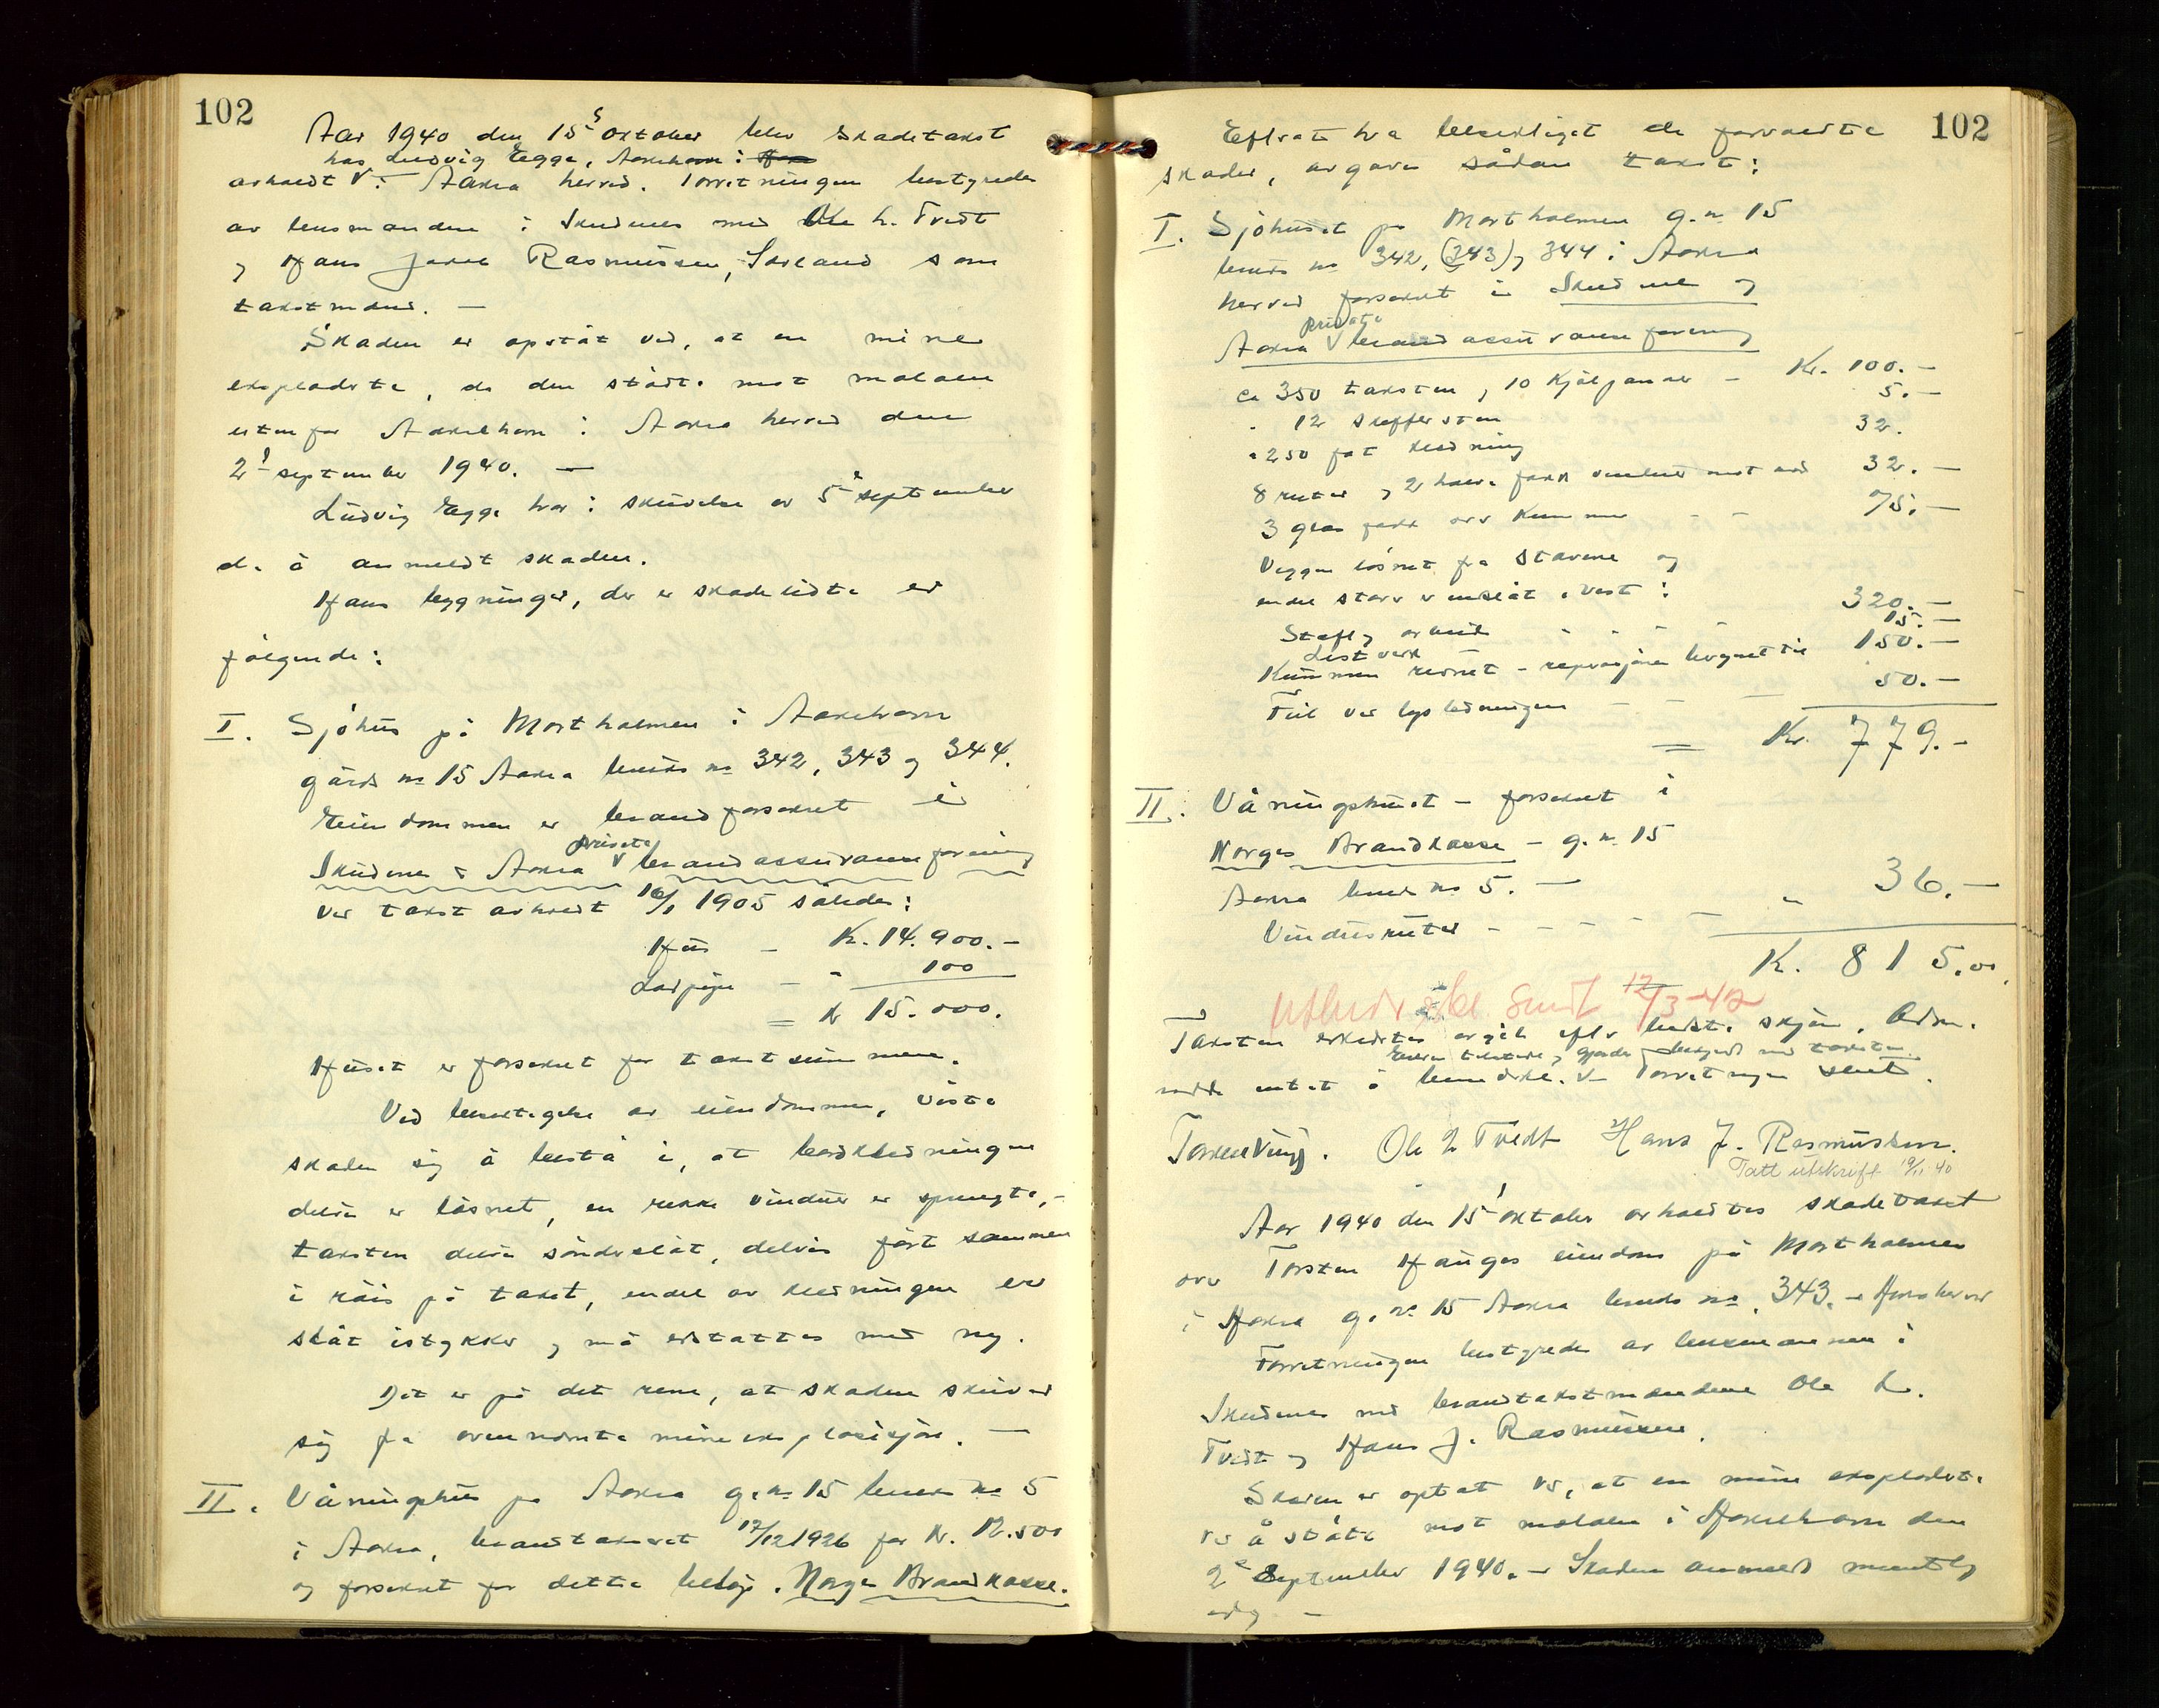 102
Aar 1940 den 15 oktober blev skadetakst
hos Ludvig Egge, Aakrehavn i
avholdt V. i Aakra herred. Forretningen bestyredes
av lensmanden i Skudenes med Ole L. Tvedt
og Hans Jakob Rasmussen, Sørland som
takstmænd. —
Skaden er opståt ved, at en mine
eksploderte, da den stødte mot moloen
utenfor Aakrehavn i Aakra herred den
2 september 1940. —
Ludvig Egge har i skrivelse av 5 september
d. å. anmeldt skaden.
Hans bygninger, der er skadelidte er
følgende:
I. Sjøhus på Mortholmen i Aakrehavn
gårds no 15 Aakra bruks no 342, 343 og 344.
Eiendommen er brandforsikret i
private
Skudenes & Aakra V brandassuranceforening
ved takst avholdt 16/1 1905 således:
Hus — Kr. 14.900.—
100
= Kr 15.000.
Huset er forsikret for takstsummene.
Ved besiktigelse av eiendommen, viste
skaden sig å bestå i, at bordkledningen
delvis er løsnet, en rekke vinduer er sprengte,
taksten delvis sønderslåt, delvis ført sammen
i røis på taket, endel av kledningen er
slåt istykker og må erstattes med ny.
Det er på det rene, at skaden skriver
sig fra ovennevnte mineeksplosisjon. —
II. Våningshus på Aakra g. no 15 bruks no 5
i Aakra, brandtakseret 17/12 1926 for kr. 12.500
og forsikret for dette beløp i Norges Brandkasse.
102
Eftat ha besiktiget de forvoldte
skader, avgaves sådan takst:
I. Sjøhuset på Mortholmen g. no 15
bruks no 342, (343) og 344 i Aakra
herred forsikret i Skudenes og
private
Aakra V brandassuranceforening
ca 350 taksten, 10 kjølpanner — Kr. 100.—
" 12 skaffersten 5.—
" 250 fot kledning 32.
8 ruter og 2 halve fakk vinduer mot nord 32.—
3 glas fakk over kummen - - 75.—
Veggen løsnet fra stavene og
endel stav er innslåt i vest:
Stoff og arbeid - - - - 320.—
Listverk 15.—
Kummen revnet - reparasjonen beregnet til 150.—
Feil ved lysledningen - - 50.—
= Kr. 779.—
II. Våningshuset - forsikret i
Norges Brandkasse - g. no 15
Aakra bruks no 5. —
Vindusruter - - - - — " 36.—
Kr. 815.00
sendt 12/3-42
Taksten erklærtes avgit efter beste skjøn.
Eieren tilstede og gjordes bekjent med taksten.
intet å bemerke. V Forretningen slut.
Ole L Tvedt Hans J. Rasmussen.
Tatt utskrift 19/11 40
Aar 1940 den 15 oktober avholdtes skadetakst
over Torsten Hauges eiendom på Mortholmen
i Aakra g. no 15 Aakra bruks no 343. —
Forretningen bestyredes av lensmannen i
Skudenes med brandtakstmændene Ole L.
Tvedt og Hans J. Rasmussen.
Skaden er opståt ved, at en mine eksploderte
ved å støte mot moloen i Aakrehavn den
2 September 1940. — Skaden anmeldt muntlig